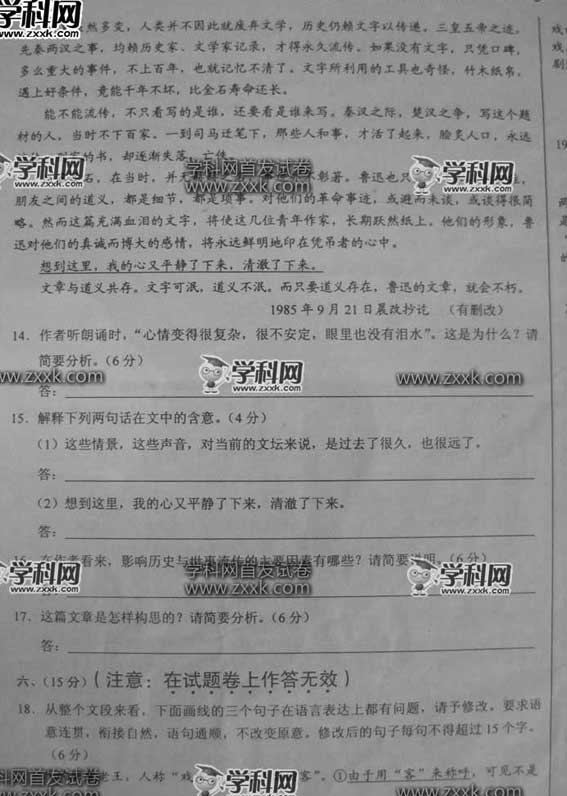 然多变，人类并不因此就废弃文学，历史仍赖文字以传递。三皇五帝之迹，
先秦两汉之事，均赖历史家、文学家记录，才得永久流传。如果没有文字，只凭口碑，
多么重大的事件，不上百年，也就记忆不清了。文字所利用的工具也奇怪，竹木纸帛，
遇上好条件，竟能千年不坏，比金石寿命还长。
能不能流传，不只看写的是谁，还要看是谁来写。秦汉之际，楚汉之争，写这个题
材的人，当时不下百家。一到司马迁笔下，那些人和事，才活了起来，脍炙人口，永远
的书，却逐渐失落
石，在当时，并
朋友之间的道义，都是细节，都是琐事。对他们的革命事迹，或避而未谈，或谈得很简
略。然而这篇充满血泪的文字，将使这几位青年作家，长期跃然纸上。他们的形象，鲁
迅对他们的真诚而博大的感情，将永远鲜明地印在凭吊者的心中。
想到这里，我的心又平静了下来，清澈了下来。
文章与道义共存。文字可泯，道义不泯。而只要道义存在，鲁迅的文章，就会不朽。
1985年9月21日晨改抄讫 （有删改）
14．作者听朗诵时，“心情变得很复杂，很不安定，眼里也没有泪水”。这是为什么？请
简要分析。（6分）
答：
15．解释下列两句话在文中的含意。（4分）
（1）这些情景，这些声音，对当前的文坛来说，是过去了很久，也很远了。
答：
（2）想到这里，我的心又平静了下来，清澈了下来。
答：
16．在作者看来，影响历史与世事流传的主要因素有哪些？请简要说明。（6分）
17．这篇文章是怎样构思的？请简要分析。（6分）
答：
六、（15分）（注意：在试题卷上作答无效）
18．从整个文段来看，下面画线的三个句子在语言表达上都有问题，请予修改。要求语
意连贯，衔接自然，语句通顺，不改变原意。修改后的句子每句不得超过15个字。
（6分）
老王，人称“戏
客”。①由于用“客”来称呼，可见不是
学科网
www.zxxk.com
学科网首发试卷
www.zxxk.com
学科网
zxxk.com
学科网
zxxk.com
学科网
zxxk.com
www.zxxk.com
学科网
zxxk.com
学科网首发试卷
www.zxxk.com
学科网
zxxk.com
学科网首发试卷
www.zxxk.com
学科网
zxxk.com